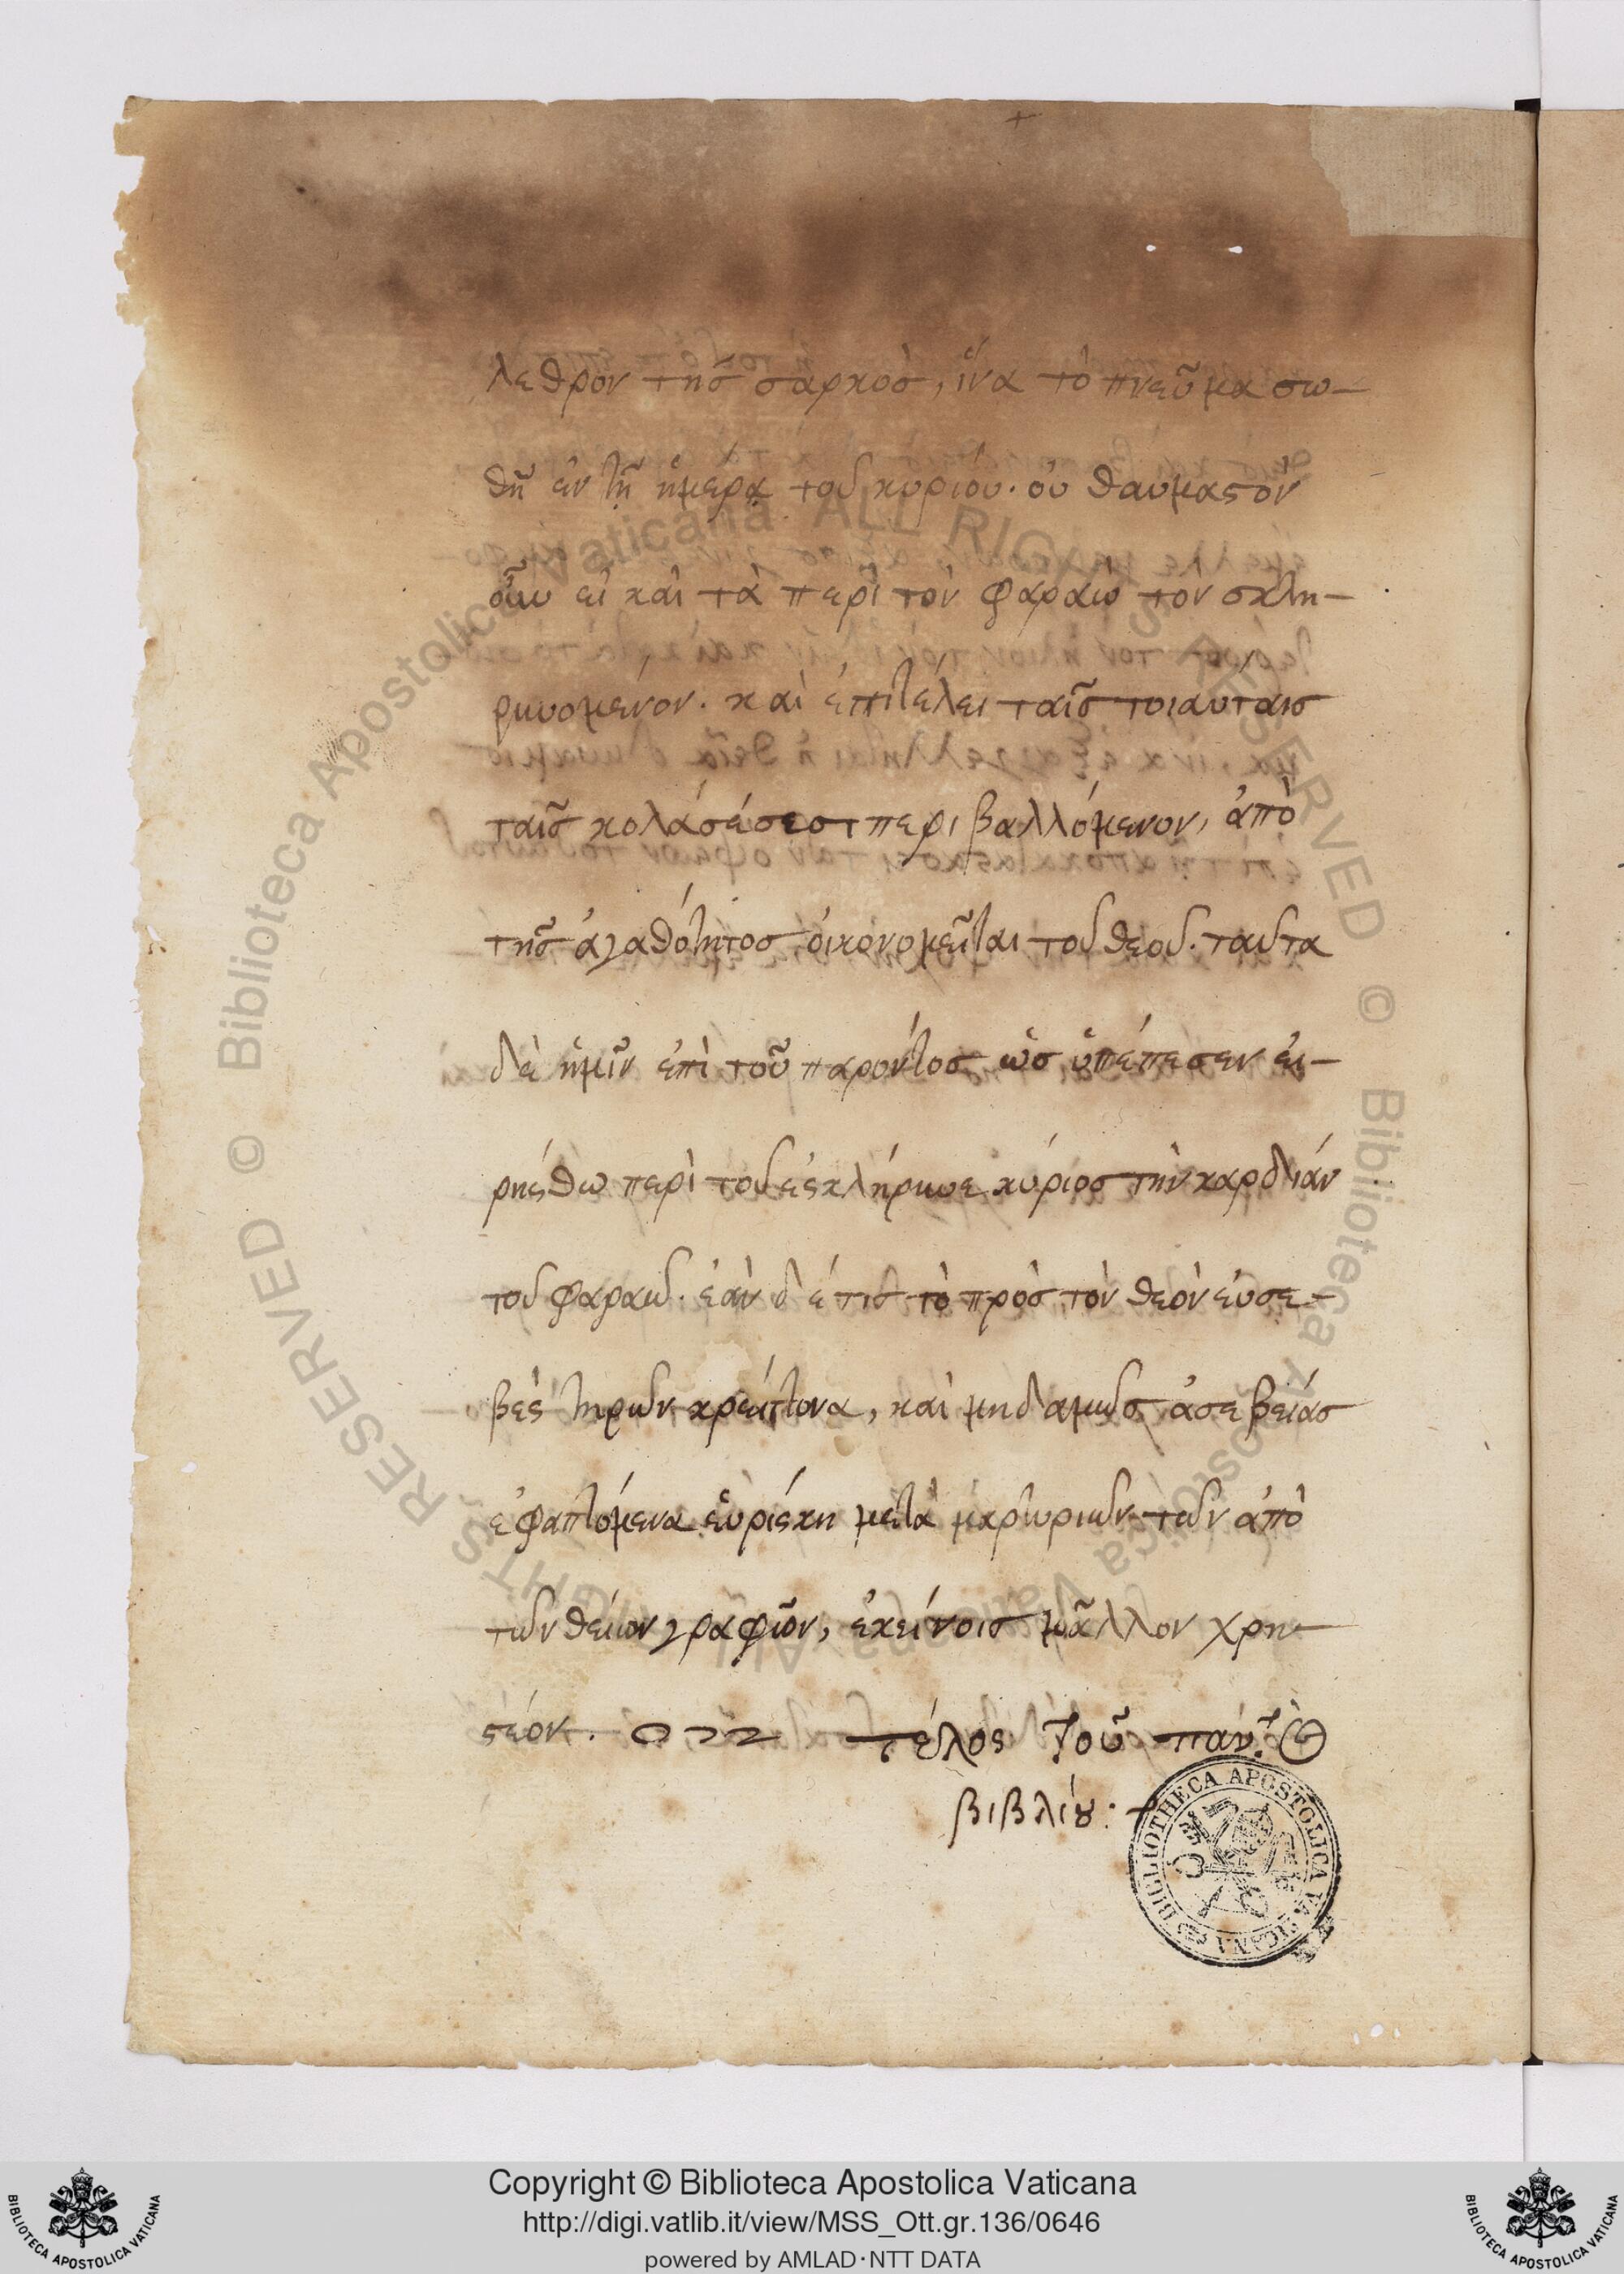 λεθρον τῆς σαρκὸς, ἵνα τὸ πνεῦμα σω-
θῆ ἐν τῆ ἡμέρᾳ τοῦ κυρίου. οὐ θαυμαστὸν
οὖν εἰ καὶ τὰ περὶ τὸν φαραὼ τὸν σκλη-
ρυνομένον. καὶ ἐπὶ τέλει ταῖς τοιαύταις
ταῖς κολάσέσεσι περιβαλλόμενον, ἀπὸ
τῆς ἀγαθότητος οἰκονομεῖται τοῦ θεοῦ. ταῦτα
δὲ ἡμῖν ἐπὶ τοῦ παρόντος ὡς ὑπέπεσεν εἰ-
ρήσθω περὶ τοῦ ἐσκλήρυνε κύριος τὴν καρδίαν
τοῦ φαραώ. ἐὰν δέ τις τὸ πρὸς τὸν θεὸν εὐσε-
βὲς τηρῶν κρείττονα, καὶ μηδαμῶς ἀσεβείας
ἐφαπτόμενα εὑρίσκη μετὰ μαρτυριῶν τῶν ἀπὸ
τῶν θείων γραφῶν, ἐκείνοις μᾶλλον χρη-
στέον. τέλος τοῦ παν
βιβλίου: +
BIBLIOTHECA APOSTOLICA VATICANA
© Biblioteca Apostolica Vaticana ALL RIGHTS RESERVED © Biblioteca Apostolica Vaticana ALL RIGHTS RESERVED
Copyright © Biblioteca Apostolica Vaticana
http://digi.vatlib.it/view/MSS_Ott.gr.136/0646
powered by AMLAD·NTT DATA
BIBLIOTECA APOSTOLICA VATICANA
BIBLIOTECA APOSTOLICA VATICANA